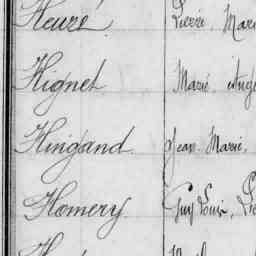 Heuré Pierre Mari
Hignet Marie
Hingand Jean Marie,
Homery Guy Louis,